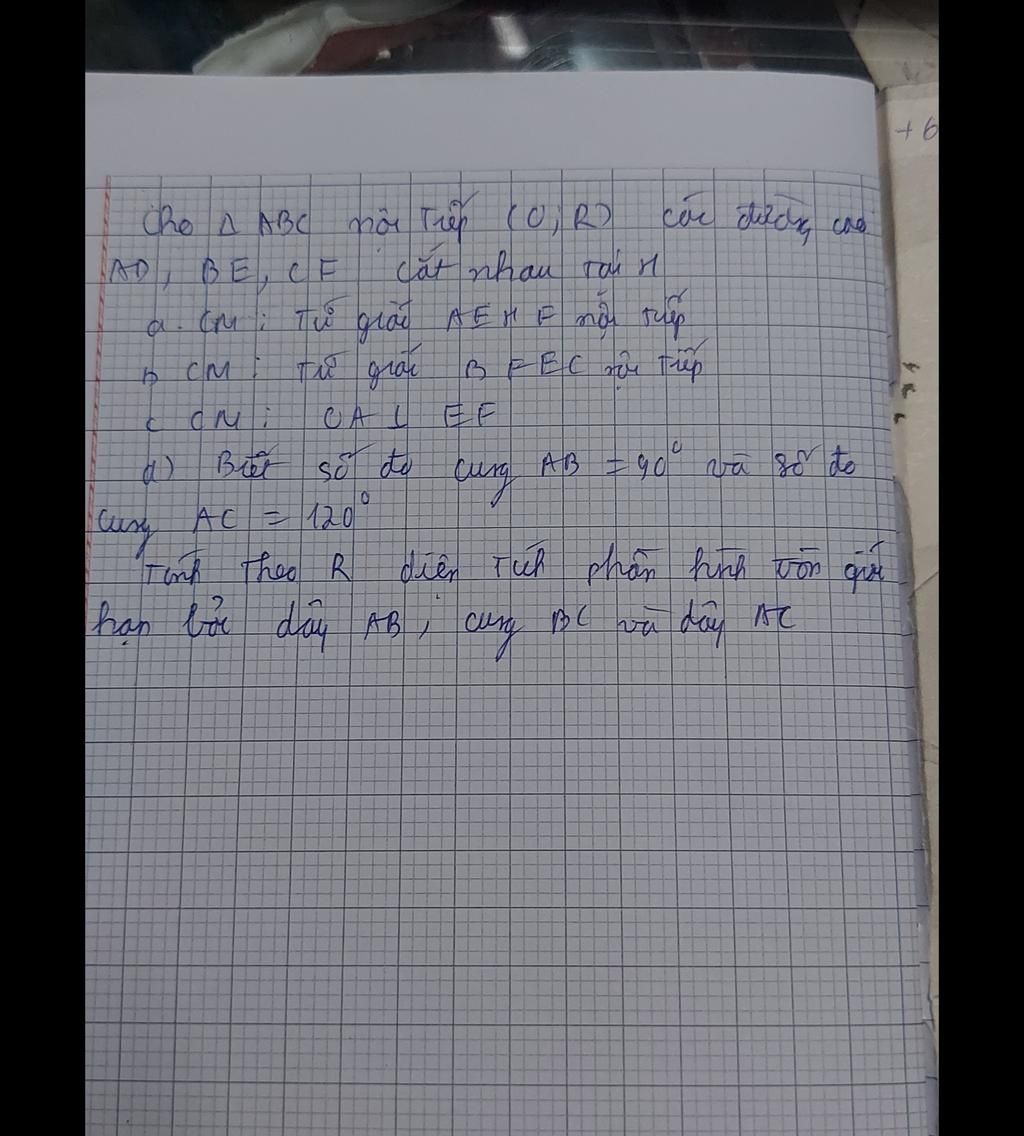 + 6
Cho Δ ABC nội Tiếp (O; R) các đường cao
AD, BE, CF cắt nhau tại H
a. CM: Tứ giác AEHF nội tiếp
b CM: Tứ giác BFEC nội Tiếp
c CM: OA ⊥ EF
d) Biết số đo cung AB = 90° và số đo
cung AC = 120°
Tính Theo R diện Tích phần hình tròn giới
hạn bởi dây AB, cung BC và dây AC